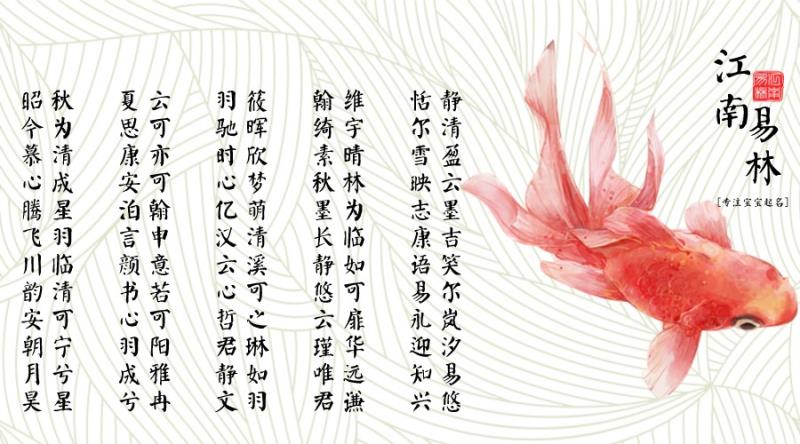 江南
易林
[专注宝宝起名]
静清盈云墨吉笑尔岚汐易悠
恬尔雪映志康语易礼迎知兴
维宇晴林为临如可扉华远谦
翰绮素秋墨长静悠云瑾唯君
筱晖欣梦萌清溪可之琳如羽
羽驰时心亿汉云心哲君静文
云可亦可翰申意若可阳雅冉
夏思康安泊言颜书心羽成兮
秋为清成星羽临清可宁兮星
昭令慕心腾飞川韵安朝月昊